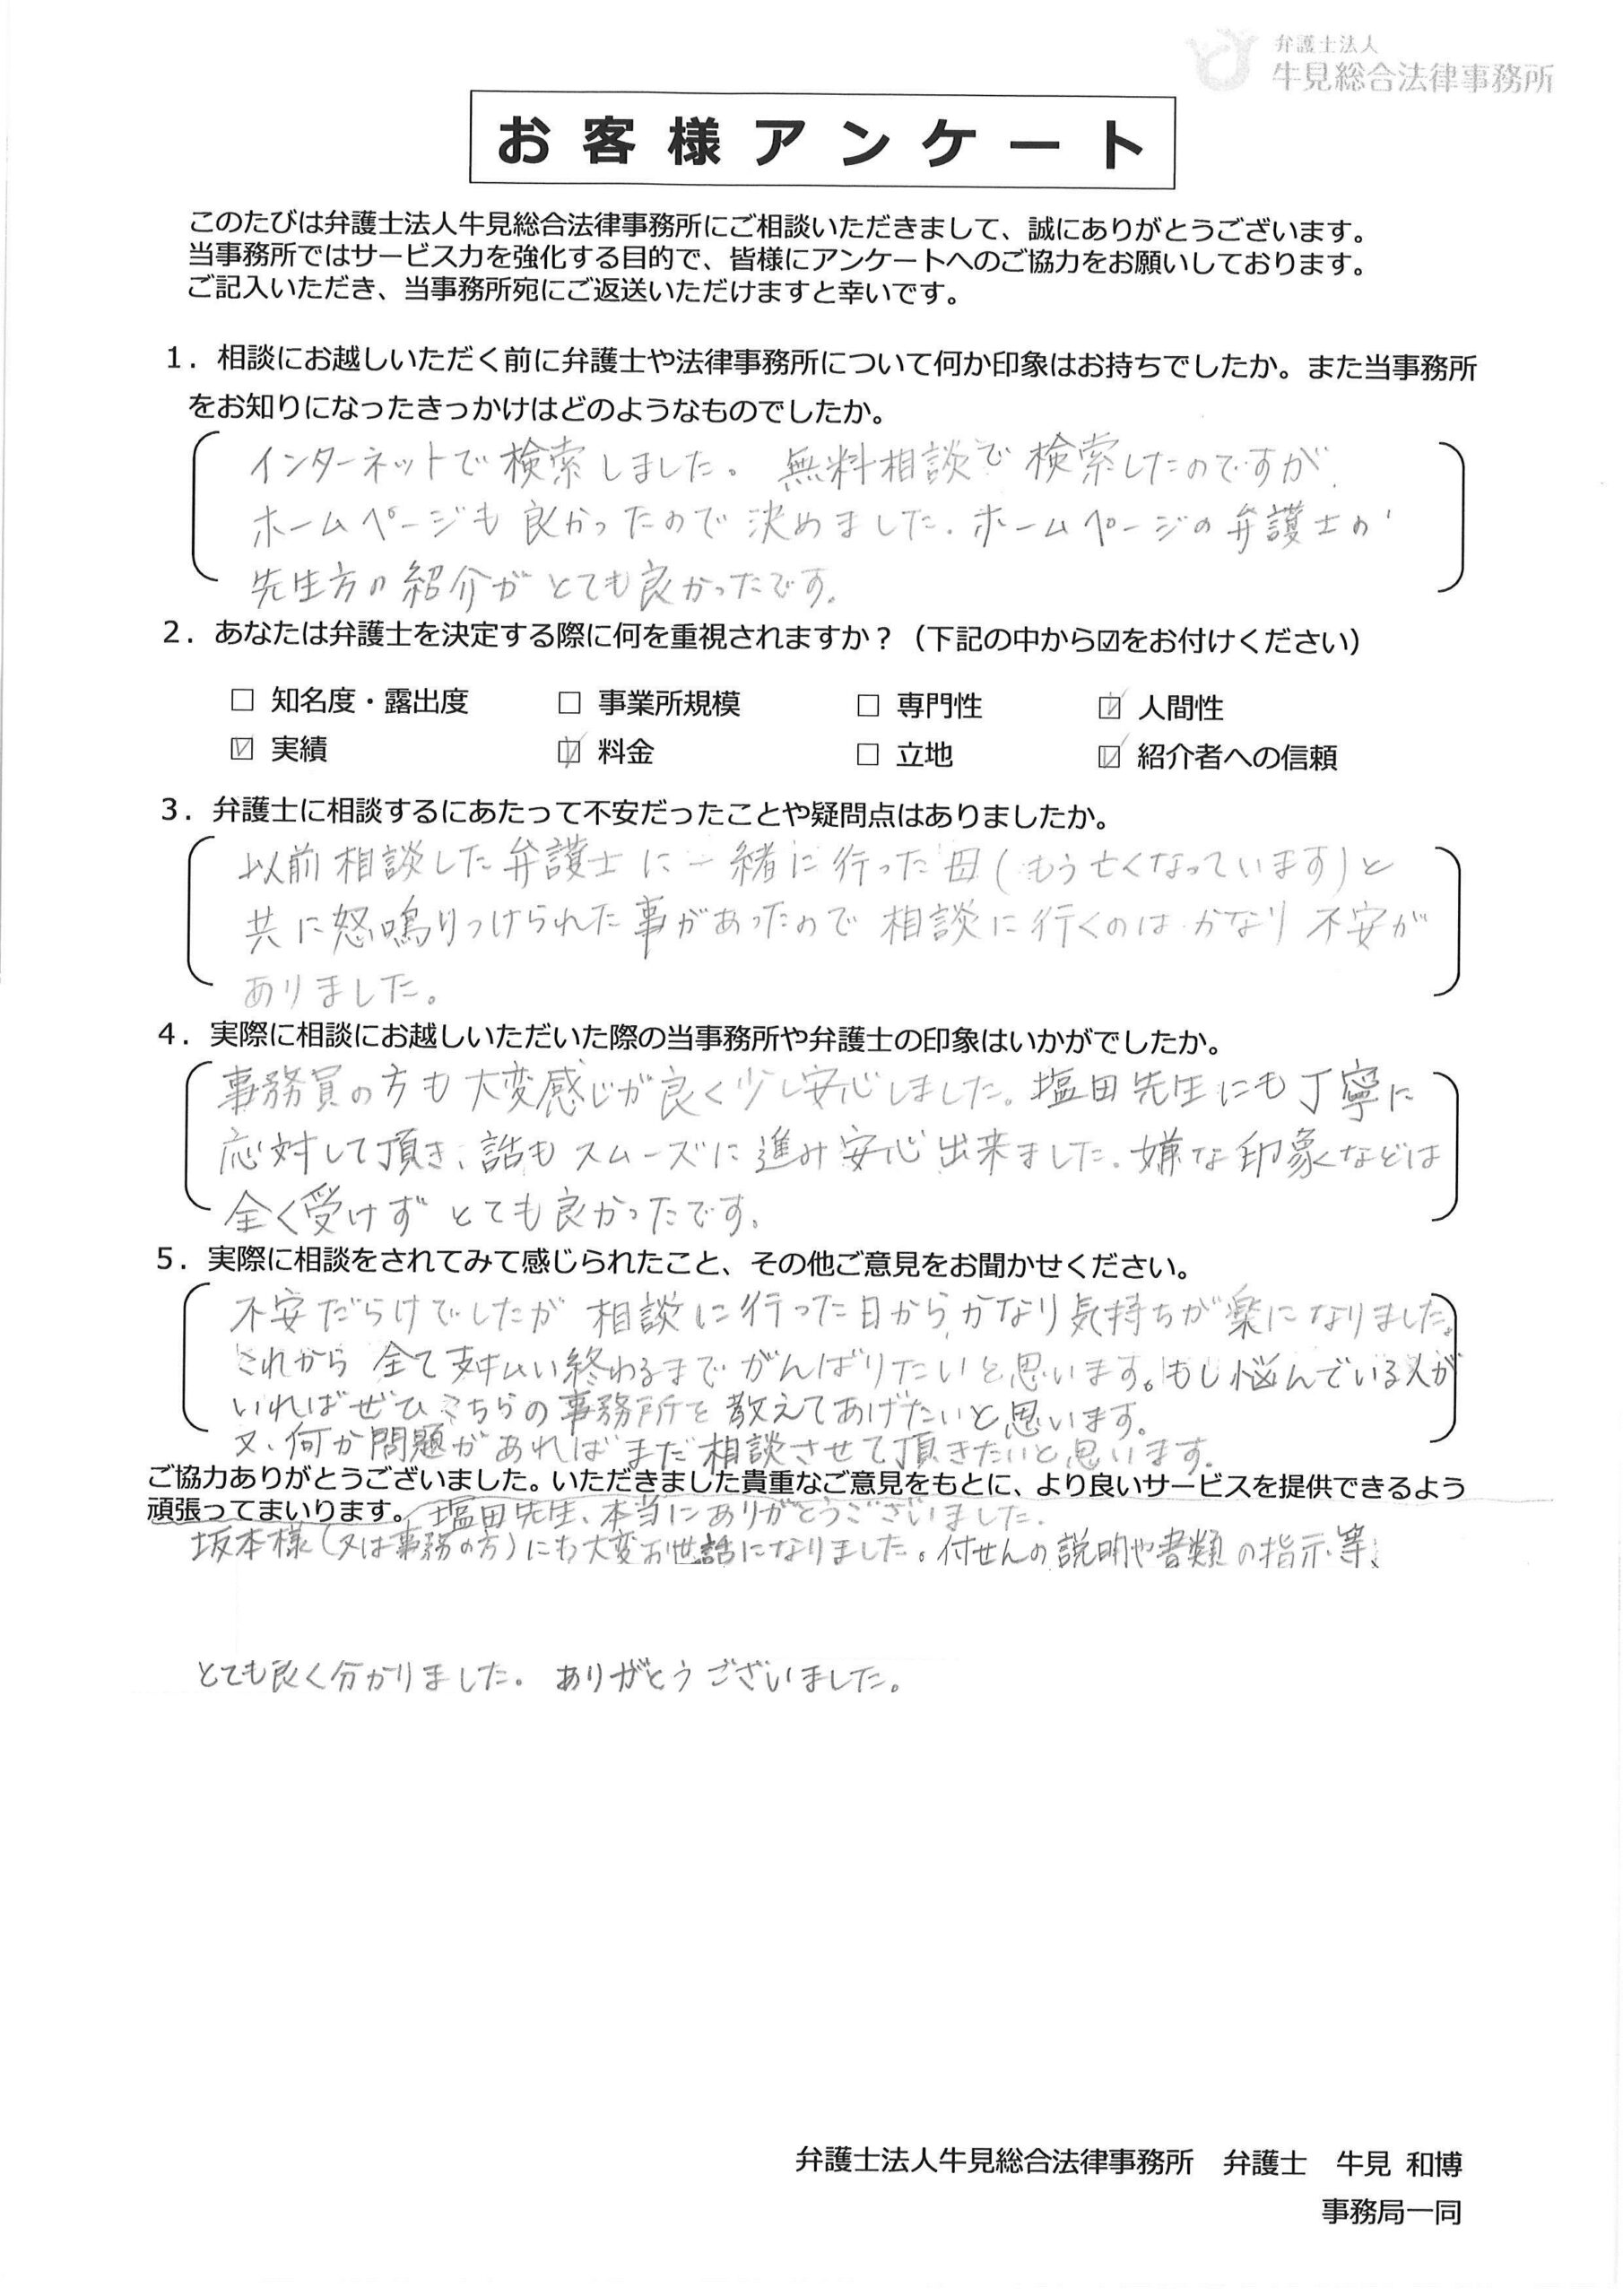 弁護士法人
牛見総合法律事務所
お客様アンケート
このたびは弁護士法人牛見総合法律事務所にご相談いただきまして、誠にありがとうございます。
当事務所ではサービス力を強化する目的で、皆様にアンケートへのご協力をお願いしております。
ご記入いただき、当事務所宛にご返送いただけますと幸いです。
1．相談にお越しいただく前に弁護士や法律事務所について何か印象はお持ちでしたか。また当事務所
をお知りになったきっかけはどのようなものでしたか。
インターネットで検索しました。無料相談で検索したのですが、
ホームページも良かったので決めました。ホームページの弁護士の
先生方の紹介がとても良かったです。
2．あなたは弁護士を決定する際に何を重視されますか？（下記の中から☑をお付けください）
□ 知名度・露出度 □ 事業所規模 □ 専門性 ☑ 人間性
☑ 実績 ☑ 料金 □ 立地 ☑ 紹介者への信頼
3．弁護士に相談するにあたって不安だったことや疑問点はありましたか。
以前相談した弁護士に一緒に行った母(もう亡くなっています)と
共に怒鳴りつけられた事があったので相談に行くのはかなり不安が
ありました。
4．実際に相談にお越しいただいた際の当事務所や弁護士の印象はいかがでしたか。
事務員の方も大変感じが良く少し安心しました。塩田先生にも丁寧に
応対して頂き、話もスムーズに進み安心出来ました。嫌な印象などは
全く受けずとても良かったです。
5．実際に相談をされてみて感じられたこと、その他ご意見をお聞かせください。
不安だらけでしたが相談に行った日から、かなり気持ちが楽になりました。
これから全て支払い終わるまでがんばりたいと思います。もし悩んでいる人が
いればぜひこちらの事務所を教えてあげたいと思います。
又、何か問題があればまだ相談させて頂きたいと思います。
ご協力ありがとうございました。いただきました貴重なご意見をもとに、より良いサービスを提供できるよう
頑張ってまいります。塩田先生、本当にありがとうございました。
坂本様(又は事務の方)にも大変お世話になりました。付せんの説明や書類の指示等、
とても良く分かりました。ありがとうございました。
弁護士法人牛見総合法律事務所 弁護士 牛見 和博
事務局一同